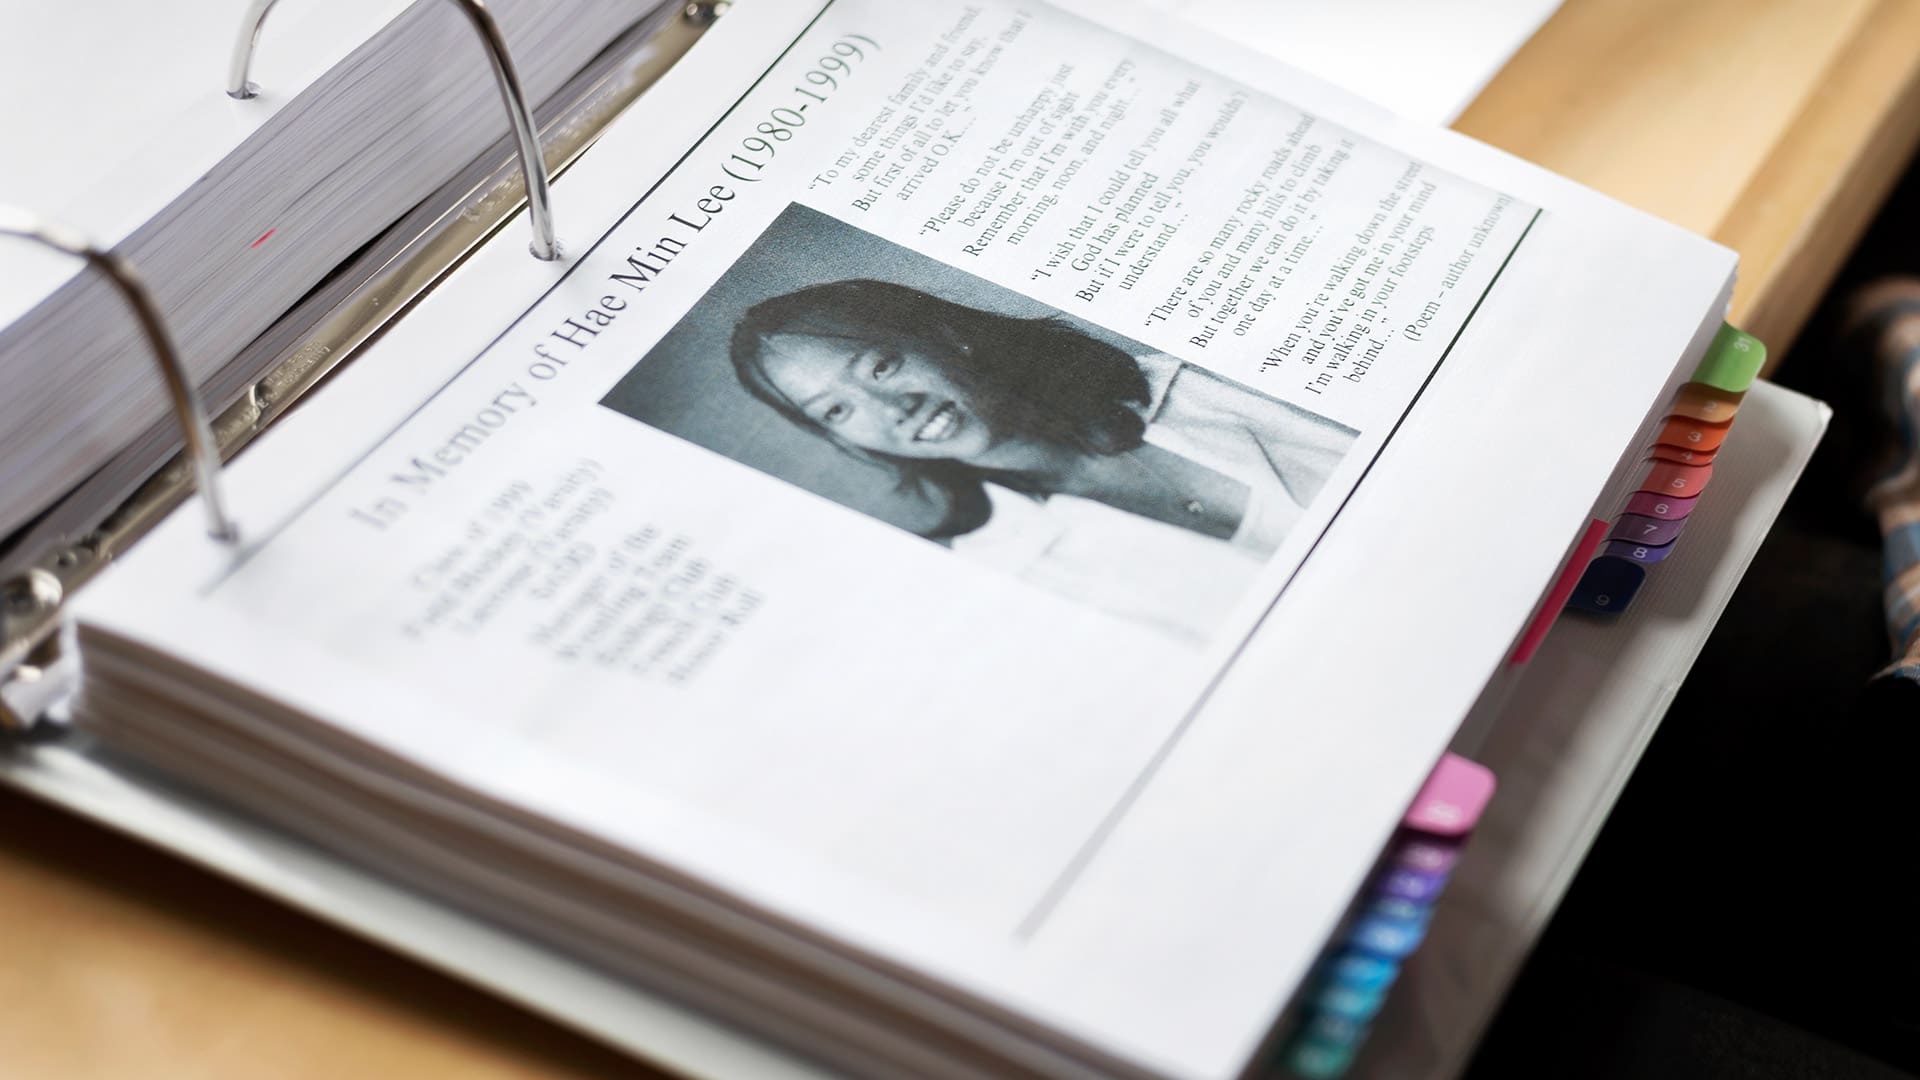 In Memory of Hae Min Lee (1980-1999)
Class of 1999
Field Hockey (Varsity)
Lacrosse (Varsity)
Manager of the
Wrestling Team
French Club
Honor Roll
“To my dearest family and friend,
some things I'd like to say,
But first of all to let you know that I
arrived O.K...”
“Please do not be unhappy just
because I'm out of sight
Remember that I'm with you every
morning, noon, and night...”
“I wish that I could tell you all what
God has planned
But if I were to tell you, you wouldn't
understand...”
“There are so many rocky roads ahead
of you and many hills to climb
But together we can do it by taking it
one day at a time...”
“When you're walking down the street
and you've got me in your mind
I'm walking in your footsteps
behind...”
(Poem – author unknown)
31
2
3
4
5
6
7
8
9